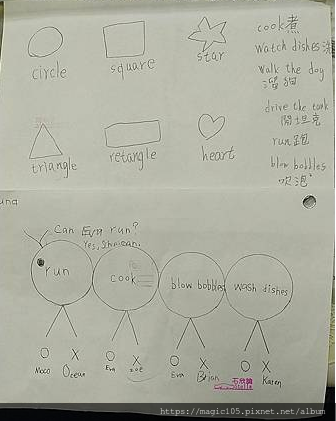 circle
square
star
triangle
retangle
heart
cook煮
watch dishes洗
walk the dog
溜狗
drive the tank
開坦克
run跑
blow bobbles
吹泡
Can Eva run?
Yes, she can.
run
cook
blow bobbles
wash dishes
O X O X O X O X
Moco Ocean Eva zoe Eva Brian Karen
https://magic105.pixnet.net/album